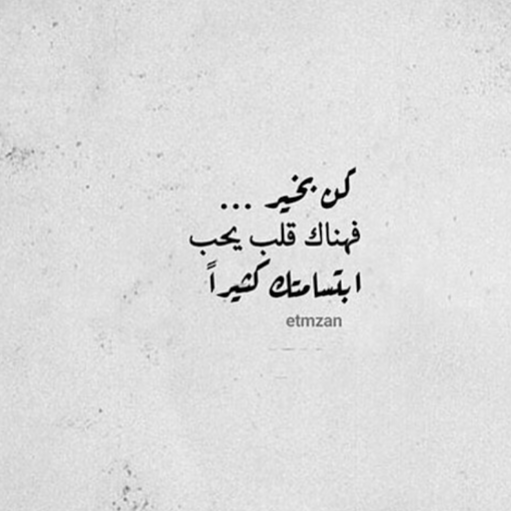 كن بخير ...
فهناك قلب يحب
ابتسامتك كثيراً
etmzan